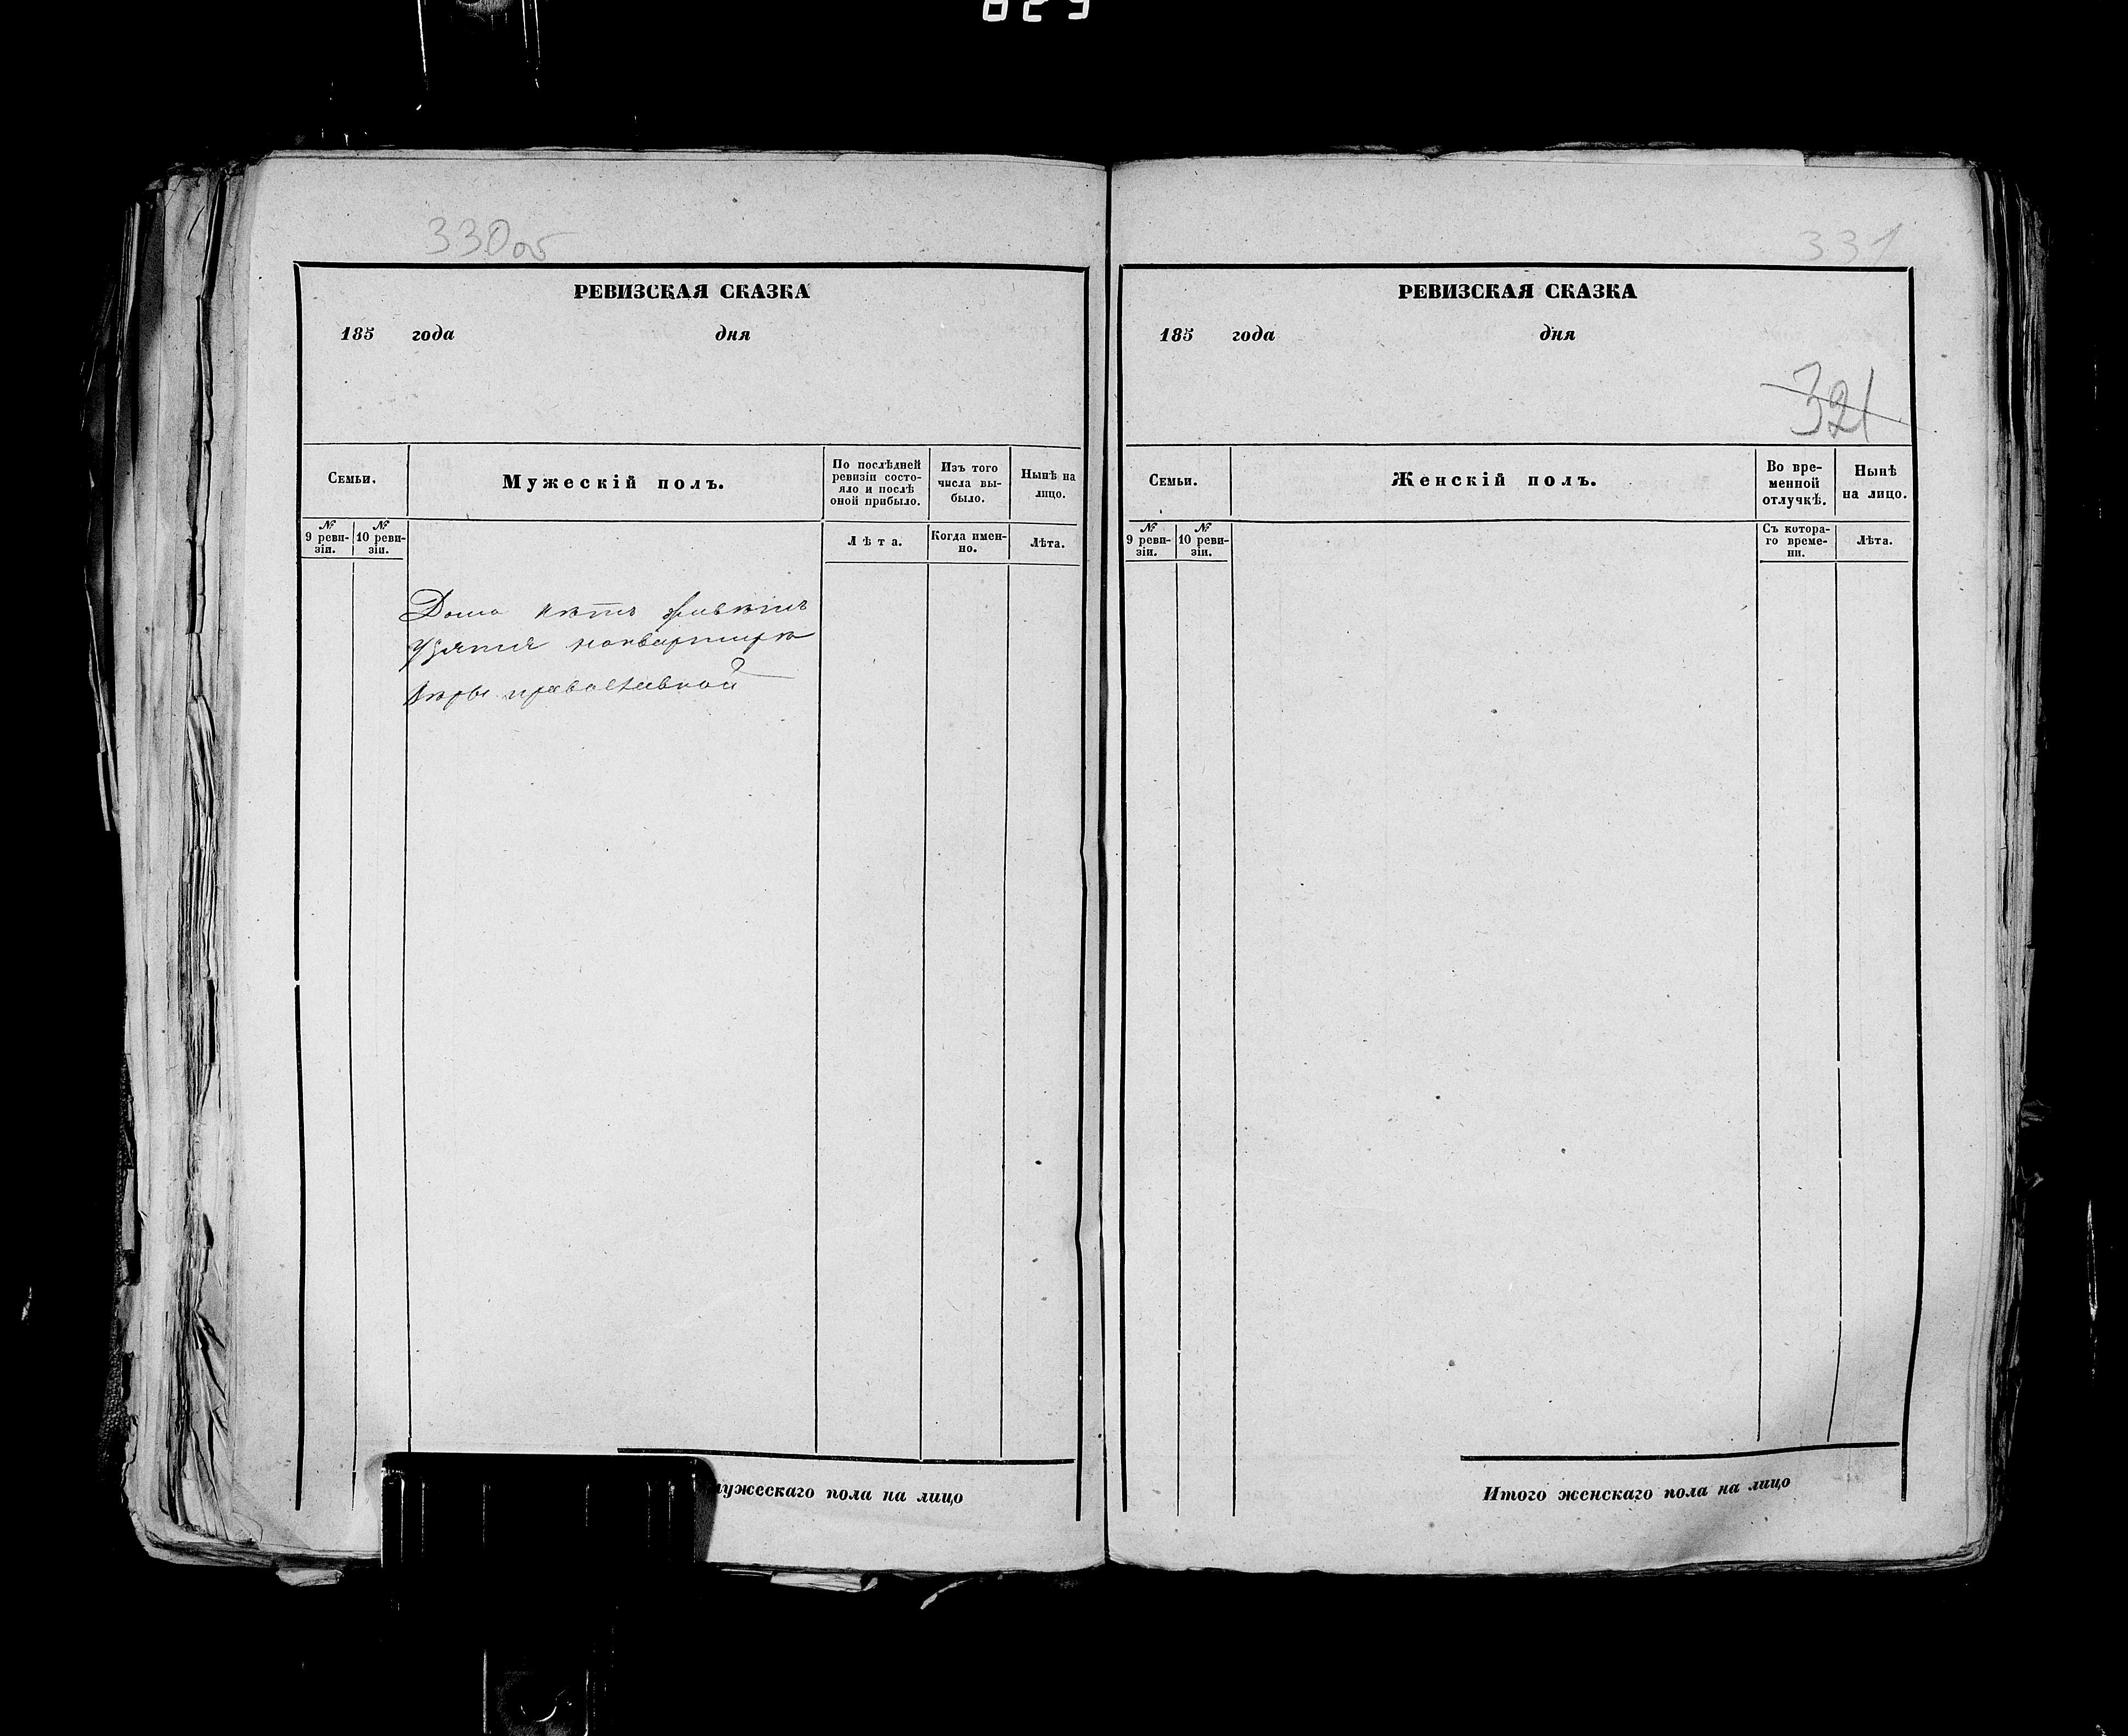 330об
РЕВИЗСКАЯ СКАЗКА
185 года дня
Семьи.
Мужескій полъ.
По послѣдней
ревизіи состо-
яло и послѣ
оной прибыло.
Изъ того
числа вы-
было.
Нынѣ на
лицо.
№
9 реви-
зіи.
№
10 реви-
зіи.
Лѣта.
Когда имен-
но.
Лѣта.
Дома нѣтъ живѣтъ
у зятя наквартирѣ
вѣры православной
мужескаго пола на лицо
331
РЕВИЗСКАЯ СКАЗКА
185 года дня
321
Семьи.
Женскій полъ.
Во вре-
менной
отлучкѣ.
Нынѣ
на лицо.
№
9 реви-
зіи.
№
10 реви-
зіи.
Съ котора-
го време-
ни.
Лѣта.
Итого женскаго пола на лицо